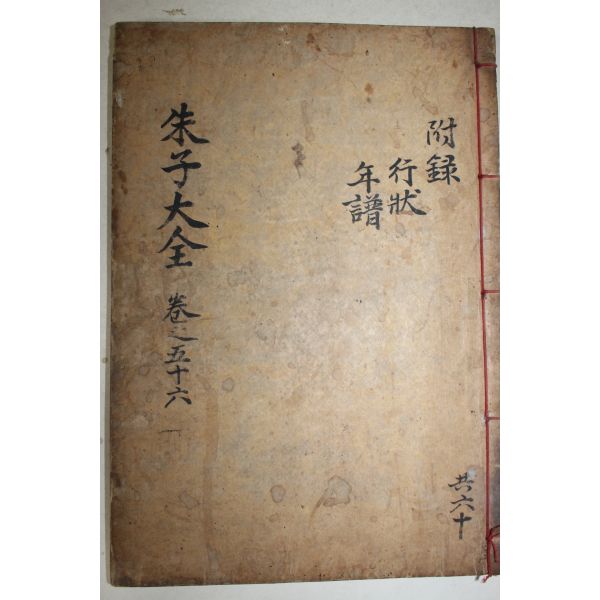 附録
行狀
年譜
朱子大全 卷之五十六
共六十